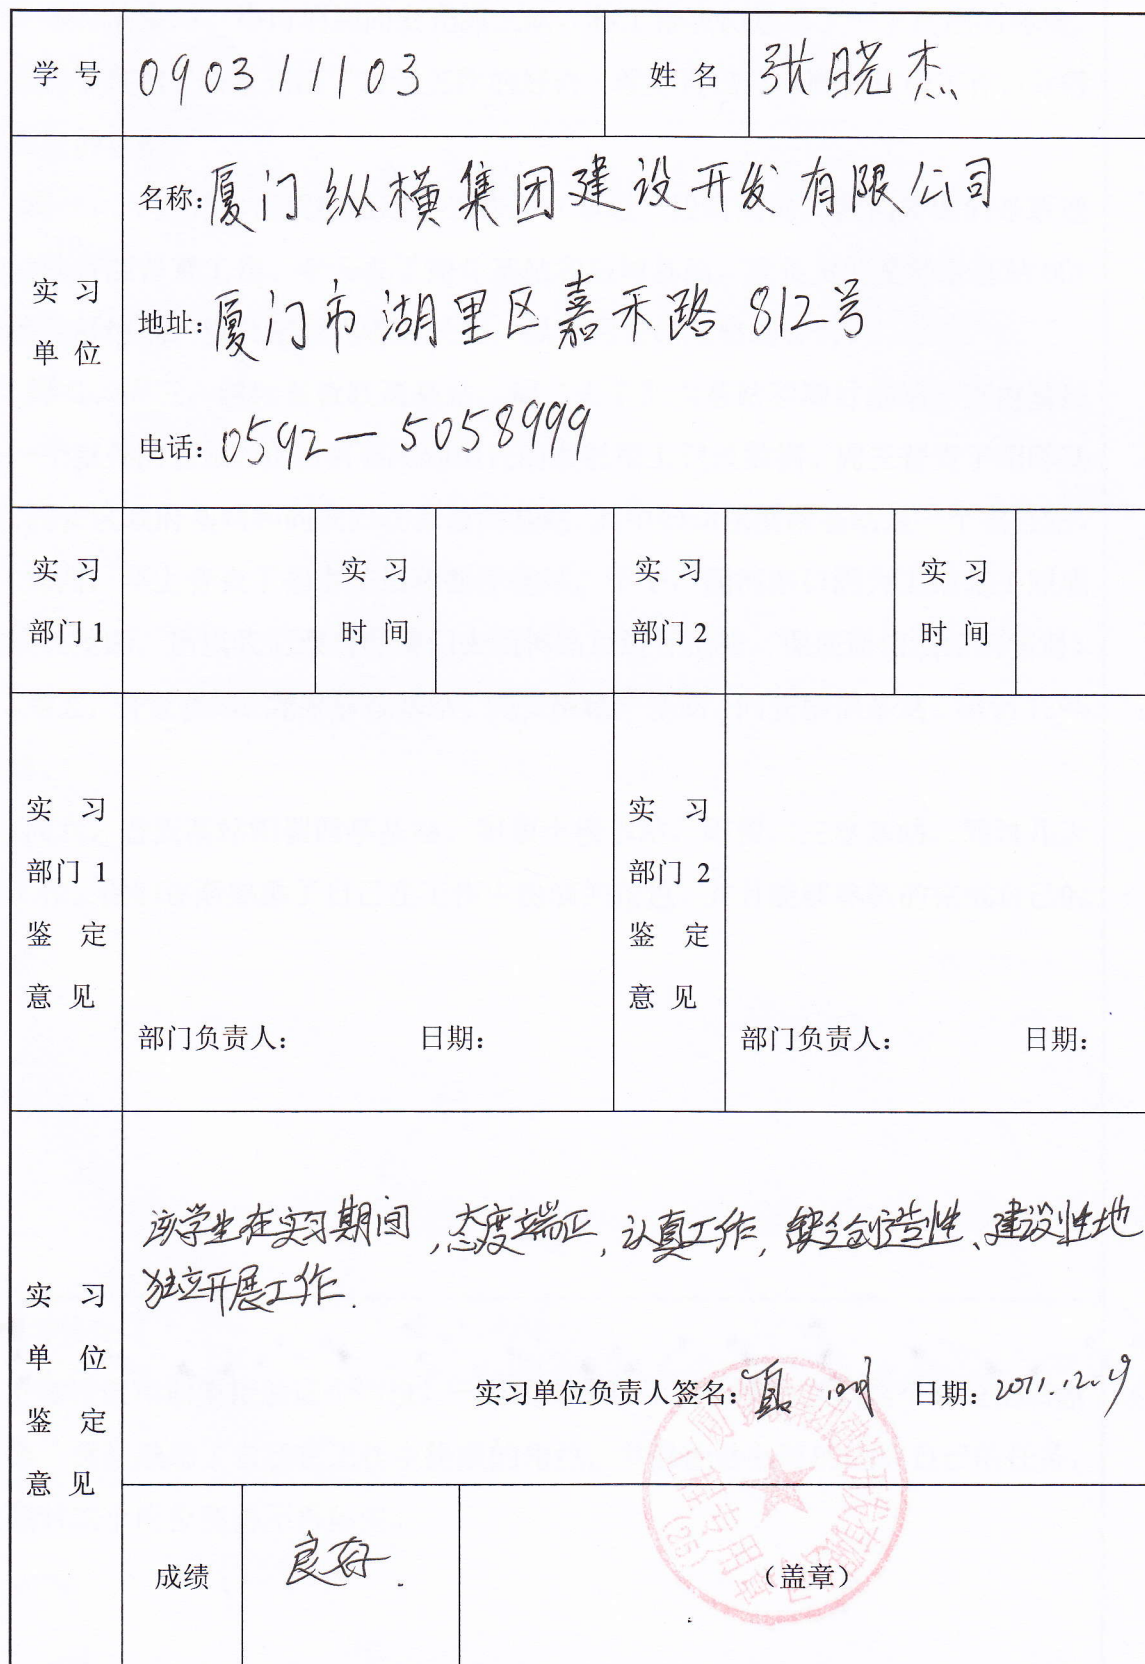 学号 090311103 姓名 张晓杰
实习单位
名称:厦门纵横集团建设开发有限公司
地址:厦门市湖里区嘉禾路812号
电话:0592—5058999
实习部门1 实习时间 实习部门2 实习时间
实习部门1鉴定意见
部门负责人: 日期:
实习部门2鉴定意见
部门负责人: 日期:
实习单位鉴定意见
该学生在实习期间,态度端正,认真工作,缺乏创造性、建设性地
独立开展工作.
实习单位负责人签名: 日期:2011.12.19
成绩 良好. (盖章)
厦门纵横集团建设开发有限公司
工程专用章
(25)